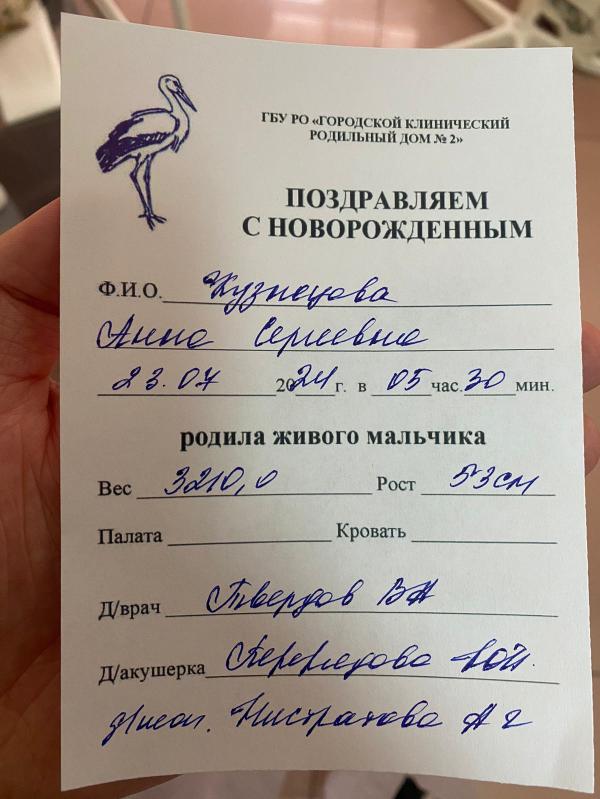 ГБУ РО «ГОРОДСКОЙ КЛИНИЧЕСКИЙ
РОДИЛЬНЫЙ ДОМ № 2»
ПОЗДРАВЛЯЕМ
С НОВОРОЖДЕННЫМ
Ф.И.О. Кузнецова
Анна Сергеевна
23.07 2024 г. в 05 час. 30 мин.
родила живого мальчика
Вес 3210,0 Рост 53 см
Палата Кровать
Д/врач Твердов ВА
Д/акушерка
Нистратова А г